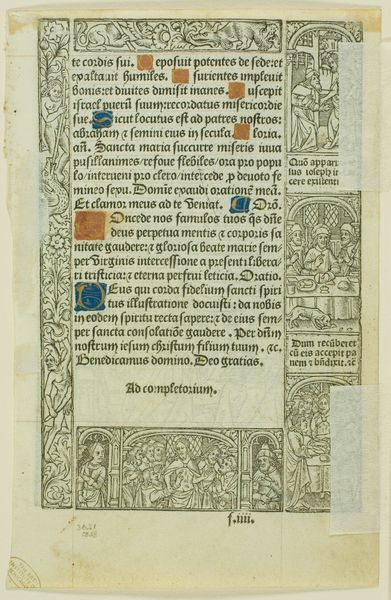 te cordis sui. Deposuit potentes de sede: et
exaltauit humiles. Esurientes impleuit
bonis: et diuites dimisit inanes. Suscepit
israel pueru suum: recordatus misericordie
sue. Sicut locutus est ad patres nostros:
abraham & semini eius in secula. Gloria.
añ. Sancta maria succurre miseris iuua
pusillanimes/refoue flebiles/ora pro popu
lo/interueni pro clero/intercede ꝓ deuoto fe
mineo sexu. Domie exaudi orationē meā.
Et clamor meus ad te veniat. Orō.
Concede nos famulos tuos q̄s dñe
deus perpetua mentis & corporis sa
nitate gaudere: & gloriosa beate marie sem
per virginis intercessione a presenti libera
ri tristicia: & eterna perfrui leticia. Oratio.
Deus qui corda fidelium sancti spiri
tus illustratione docuisti: da nobis
in eodem spiritu recta sapere: & de eius sem
per sancta consolatiōe gaudere. Per dñm
nostrum iesum christum filium tuum. &c.
Benedicamus domino. Deo gratias.
Ad completorium.
Quō appar
lus ioseph i
cere existenti
Dum recūberet
cū eis accepit pa
nem & bñdixit. &c
f.iiii.